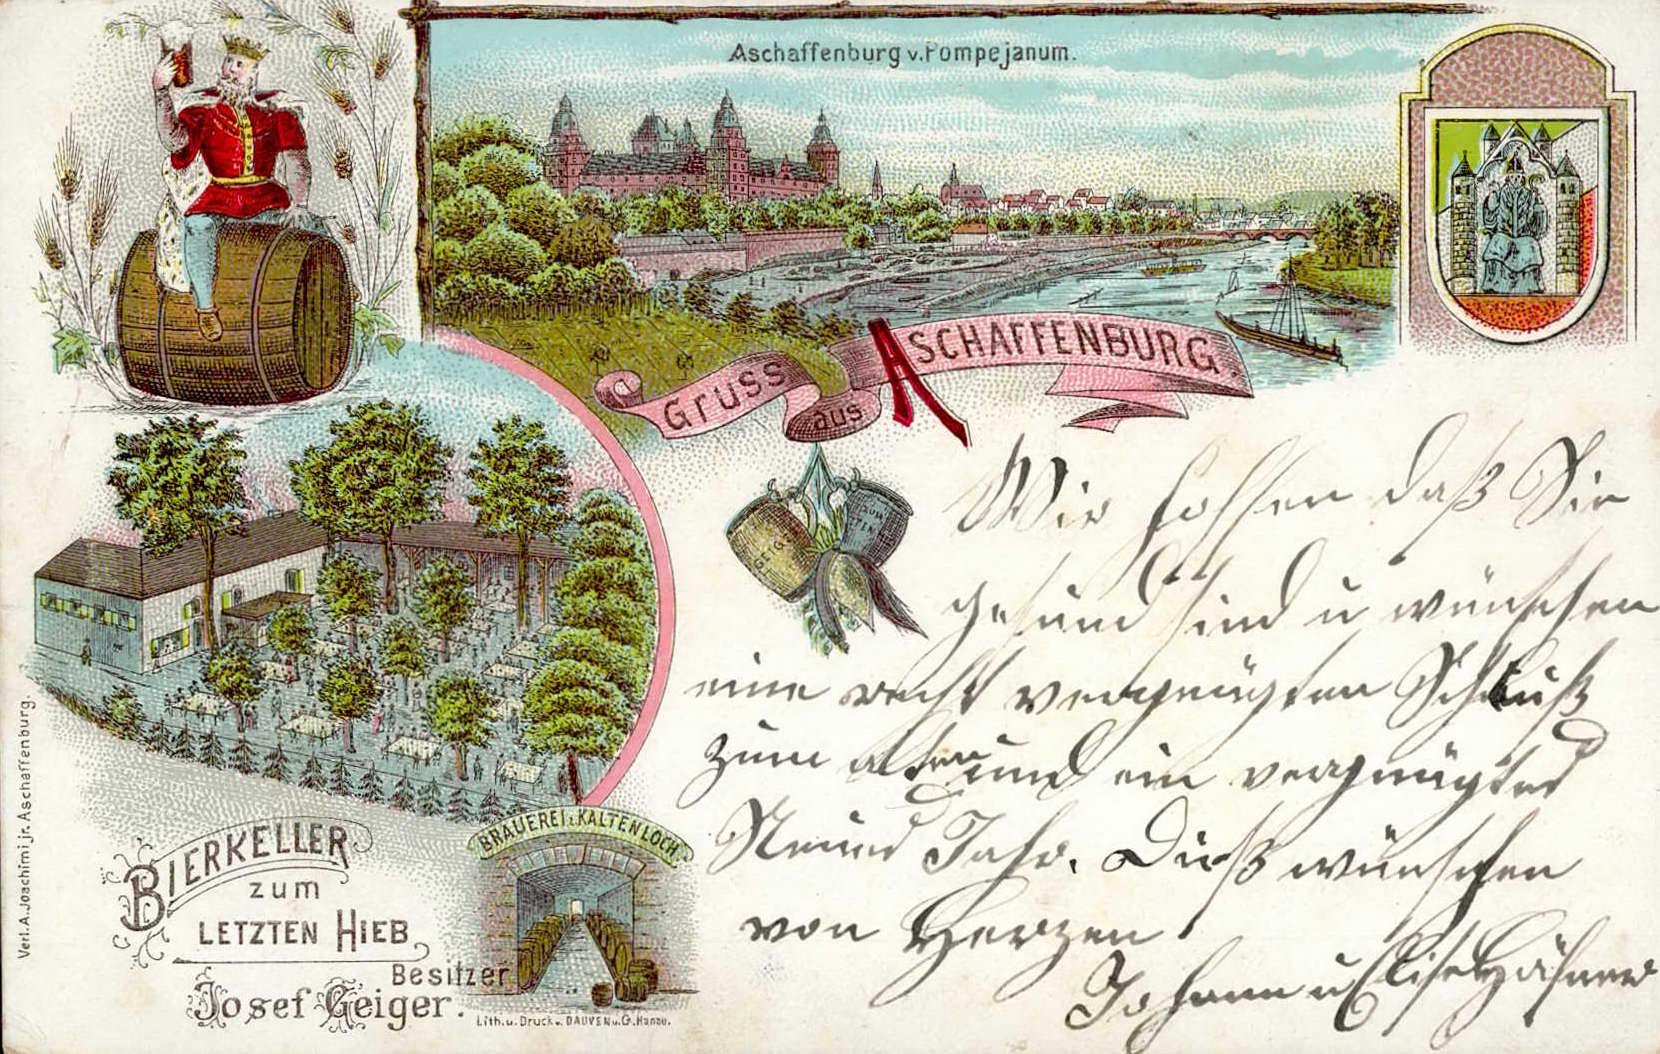 Aschaffenburg v. Pompejanum.
Gruss
aus
ASCHAFFENBURG.
Wir hoffen daß Sie
gesund sind u wünschen
eine recht vergnügten Schluß
zum alten und ein vergnügtes
Neues Jahr. Dieß wünschen
von Herzen
Johann u Elise
BRAUEREI z. KALTENLOCH
BIERKELLER
zum
LETZTEN HIEB
Besitzer
Josef Geiger.
Lith. u. Druck v. DAUVEN u. G. Hanau.
Verl. A. Joachimi jr. Aschaffenburg.